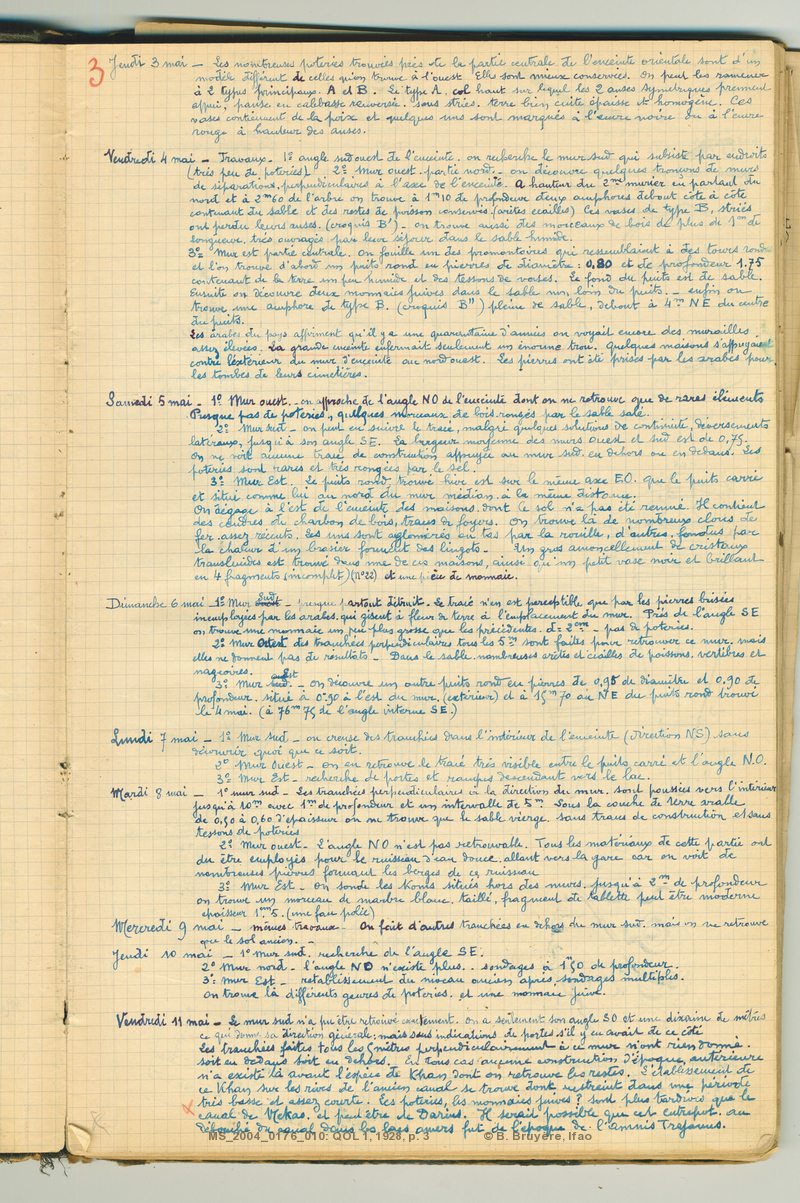 3
Jeudi 3 mai — Les nombreuses poteries trouvées près de la partie centrale de l'enceinte orientale sont d'un
modèle différent de celles qu'on trouve à l'ouest. Elle sont mieux conservées. On peut les ramener
à 2 types principaux. A et B. Le type A. col haut sur lequel les 2 anses symétriques prennent
appui, panse en calebasse renversée. sans stries. terre bien cuite épaisse et homogène. Ces
vases contiennent de la poix et quelques uns sont marqués à l'encre noire ou à l'encre
rouge à hauteur des anses.
Vendredi 4 mai — Travaux. 1° angle sud ouest de l'enceinte. on recherche le mur sud qui subsiste par endroits
(très peu de poteries). 2° Mur ouest. partie nord. on découvre quelques tronçons de murs
de séparation, perpendiculaires à l'axe de l'enceinte. A hauteur du 2me murier en partant du
nord et à 2m60 de l'arbre on trouve à 1m10 de profondeur deux amphores debout côte à côte
contenant du sable et des restes de poisson conservés (arêtes écailles) Ces vases de type B, striés
ont perdu leurs anses. (croquis B') — on trouve aussi des morceaux de bois de plus de 1m de
longueur très ouvragés par leur séjour dans le sable humide.
3° Mur est partie centrale. On fouille un des promontoires qui ressemblaient à des tours rondes
et l'on trouve d'abord un puits rond en pierres de diamètre : 0,80 et de profondeur 1.75
contenant de la terre un peu humide et des tessons de vases. Le fond du puits est de sable.
Ensuite on découvre deux monnaies juives dans le sable non loin du puits. — enfin on
trouve une amphore de type B. (croquis B'') pleine de sable, debout à 4m NE du centre
du puits.
Les arabes du pays affirment qu'il y a une quarantaine d'années on voyait encore des murailles
assez élevées. La grande enceinte enfermait seulement un énorme trou. Quelques maisons s'appuyaient
contre l'extérieur du mur d'enceinte au nord ouest. Les pierres ont été prises par les arabes pour
les tombes de leurs cimetières.
Samedi 5 mai — 1° Mur ouest. — on approche de l'angle NO de l'enceinte dont on ne retrouve que de rares éléments
Presque pas de poteries, quelques morceaux de bois rongés par le sable salé.
2° Mur sud — on peut en suivre le tracé, malgré quelques solutions de continuité, déversements
latéraux, jusqu'à son angle SE. La largeur moyenne des murs ouest et sud est de 0,75.
On ne voit aucune trace de construction appuyée au mur sud. en dehors ou en dedans. Les
poteries sont rares et très rongées par le sel.
3° Mur Est. Le puits rond trouvé hier est sur le même axe E.O. que le puits carré
et situé comme lui au nord du mur médian à la même distance.
On dégage à l'est de l'enceinte des maisons dont le sol n'a pas été remué. Il contient
des cendres de charbon de bois, traces de foyers. On trouve là de nombreux clous de
fer assez récents. Les uns sont agglomérés en tas par la rouille, d'autres, fondus par
la chaleur d'un brasier forment des lingots. — Un gros amoncellement de cristaux
translucides est trouvé dans une de ces maisons, ainsi qu'un petit vase noir et brillant
en 4 fragments (incomplet) (N°22) et une pièce de monnaie.
Dimanche 6 mai — 1° Mur Sud — presque partout détruit. Le tracé n'en est perceptible que par les pierres brisées
inemployées par les arabes, qui gisent à fleur de terre à l'emplacement du mur. Près de l'angle SE
on trouve une monnaie un peu plus grosse que les précédentes. d= 2cm — pas de poteries.
2° Mur Ouest des tranchées perpendiculaires tous les 5m sont faites pour retrouver ce mur, mais
elles ne donnent pas de résultats — Dans le sable nombreuses arêtes et écailles de poissons, vertèbres et
nageoires.
3° Mur Est — on découvre un autre puits rond en pierres de 0,95 de diamètre et 0.90 de
profondeur situé à 0m90 à l'est du mur. (extérieur) et à 15m70 au NE du puits rond trouvé
le 4 mai. (à 76m75 de l'angle interne SE.)
Lundi 7 mai — 1° Mur Sud — on creuse des tranchées dans l'intérieur de l'enceinte (direction NS) sans
découvrir quoi que ce soit.
2° Mur Ouest — on en retrouve le tracé très visible entre le puits carré et l'angle N.O.
3° Mur Est — recherche de portes et rampes descendant vers le lac.
Mardi 8 mai — 1° mur sud — Les tranchées perpendiculaires à la direction du mur, sont poussées vers l'intérieur
jusqu'à 10m avec 1m de profondeur et un intervalle de 5m. Sous la couche de terre arable
de 0,50 à 0,60 d'épaisseur on ne trouve que le sable vierge. sans traces de construction et sans
tessons de poteries
2° Mur ouest — L'angle NO n'est pas retrouvable. Tous les matériaux de cette partie ont
du être employés pour le ruisseau d'eau douce allant vers la gare car on voit de
nombreuses pierres formant les berges de ce ruisseau
3° Mur Est — On sonde les Koms situés hors des murs. jusqu'à 2m de profondeur
on trouve un morceau de marbre blanc taillé, fragment de tablette peut être moderne
épaisseur 1cm5. (une face polie)
Mercredi 9 mai — mêmes travaux — On fait d'autres tranchées en dehors du mur sud. mais on ne retrouve
que le sol ancien. —
Jeudi 10 mai — 1° mur sud. recherche de l'angle SE.
2° Mur nord — l'angle NO n'existe plus. sondages à 1m50 de profondeur.
3° mur Est — rétablissement du niveau ancien après sondages multiples.
On trouve là différents genres de poteries. et une monnaie juive.
Vendredi 11 mai — Le mur sud n'a pu être retrouvé exactement. On a seulement son angle SO et une dizaine de mètres
ce qui donne sa direction générale; mais sans indications de portes s'il y en avait de ce côté
Les tranchées faites tous les 5 mètres perpendiculairement à ce mur n'ont rien donné.
soit en dedans soit en dehors. En tous cas aucune construction d'époque antérieure
n'a existé là avant l'espèce de Khan dont on retrouve les restes. L'établissement de
ce Khan sur les rives de l'ancien canal se trouve donc restreint dans une période
très basse et assez courte. Les poteries, les monnaies juives ? sont plus tardives que le
canal de Nekao. et peut être de Darius. Il serait possible que cet entrepôt au
débouché du canal dans les lacs amers fut de l'époque de l'amnis Trajanus.
MS_2004_0176_010: QOL 1, 1928, p. 3 © B. Bruyère, Ifao